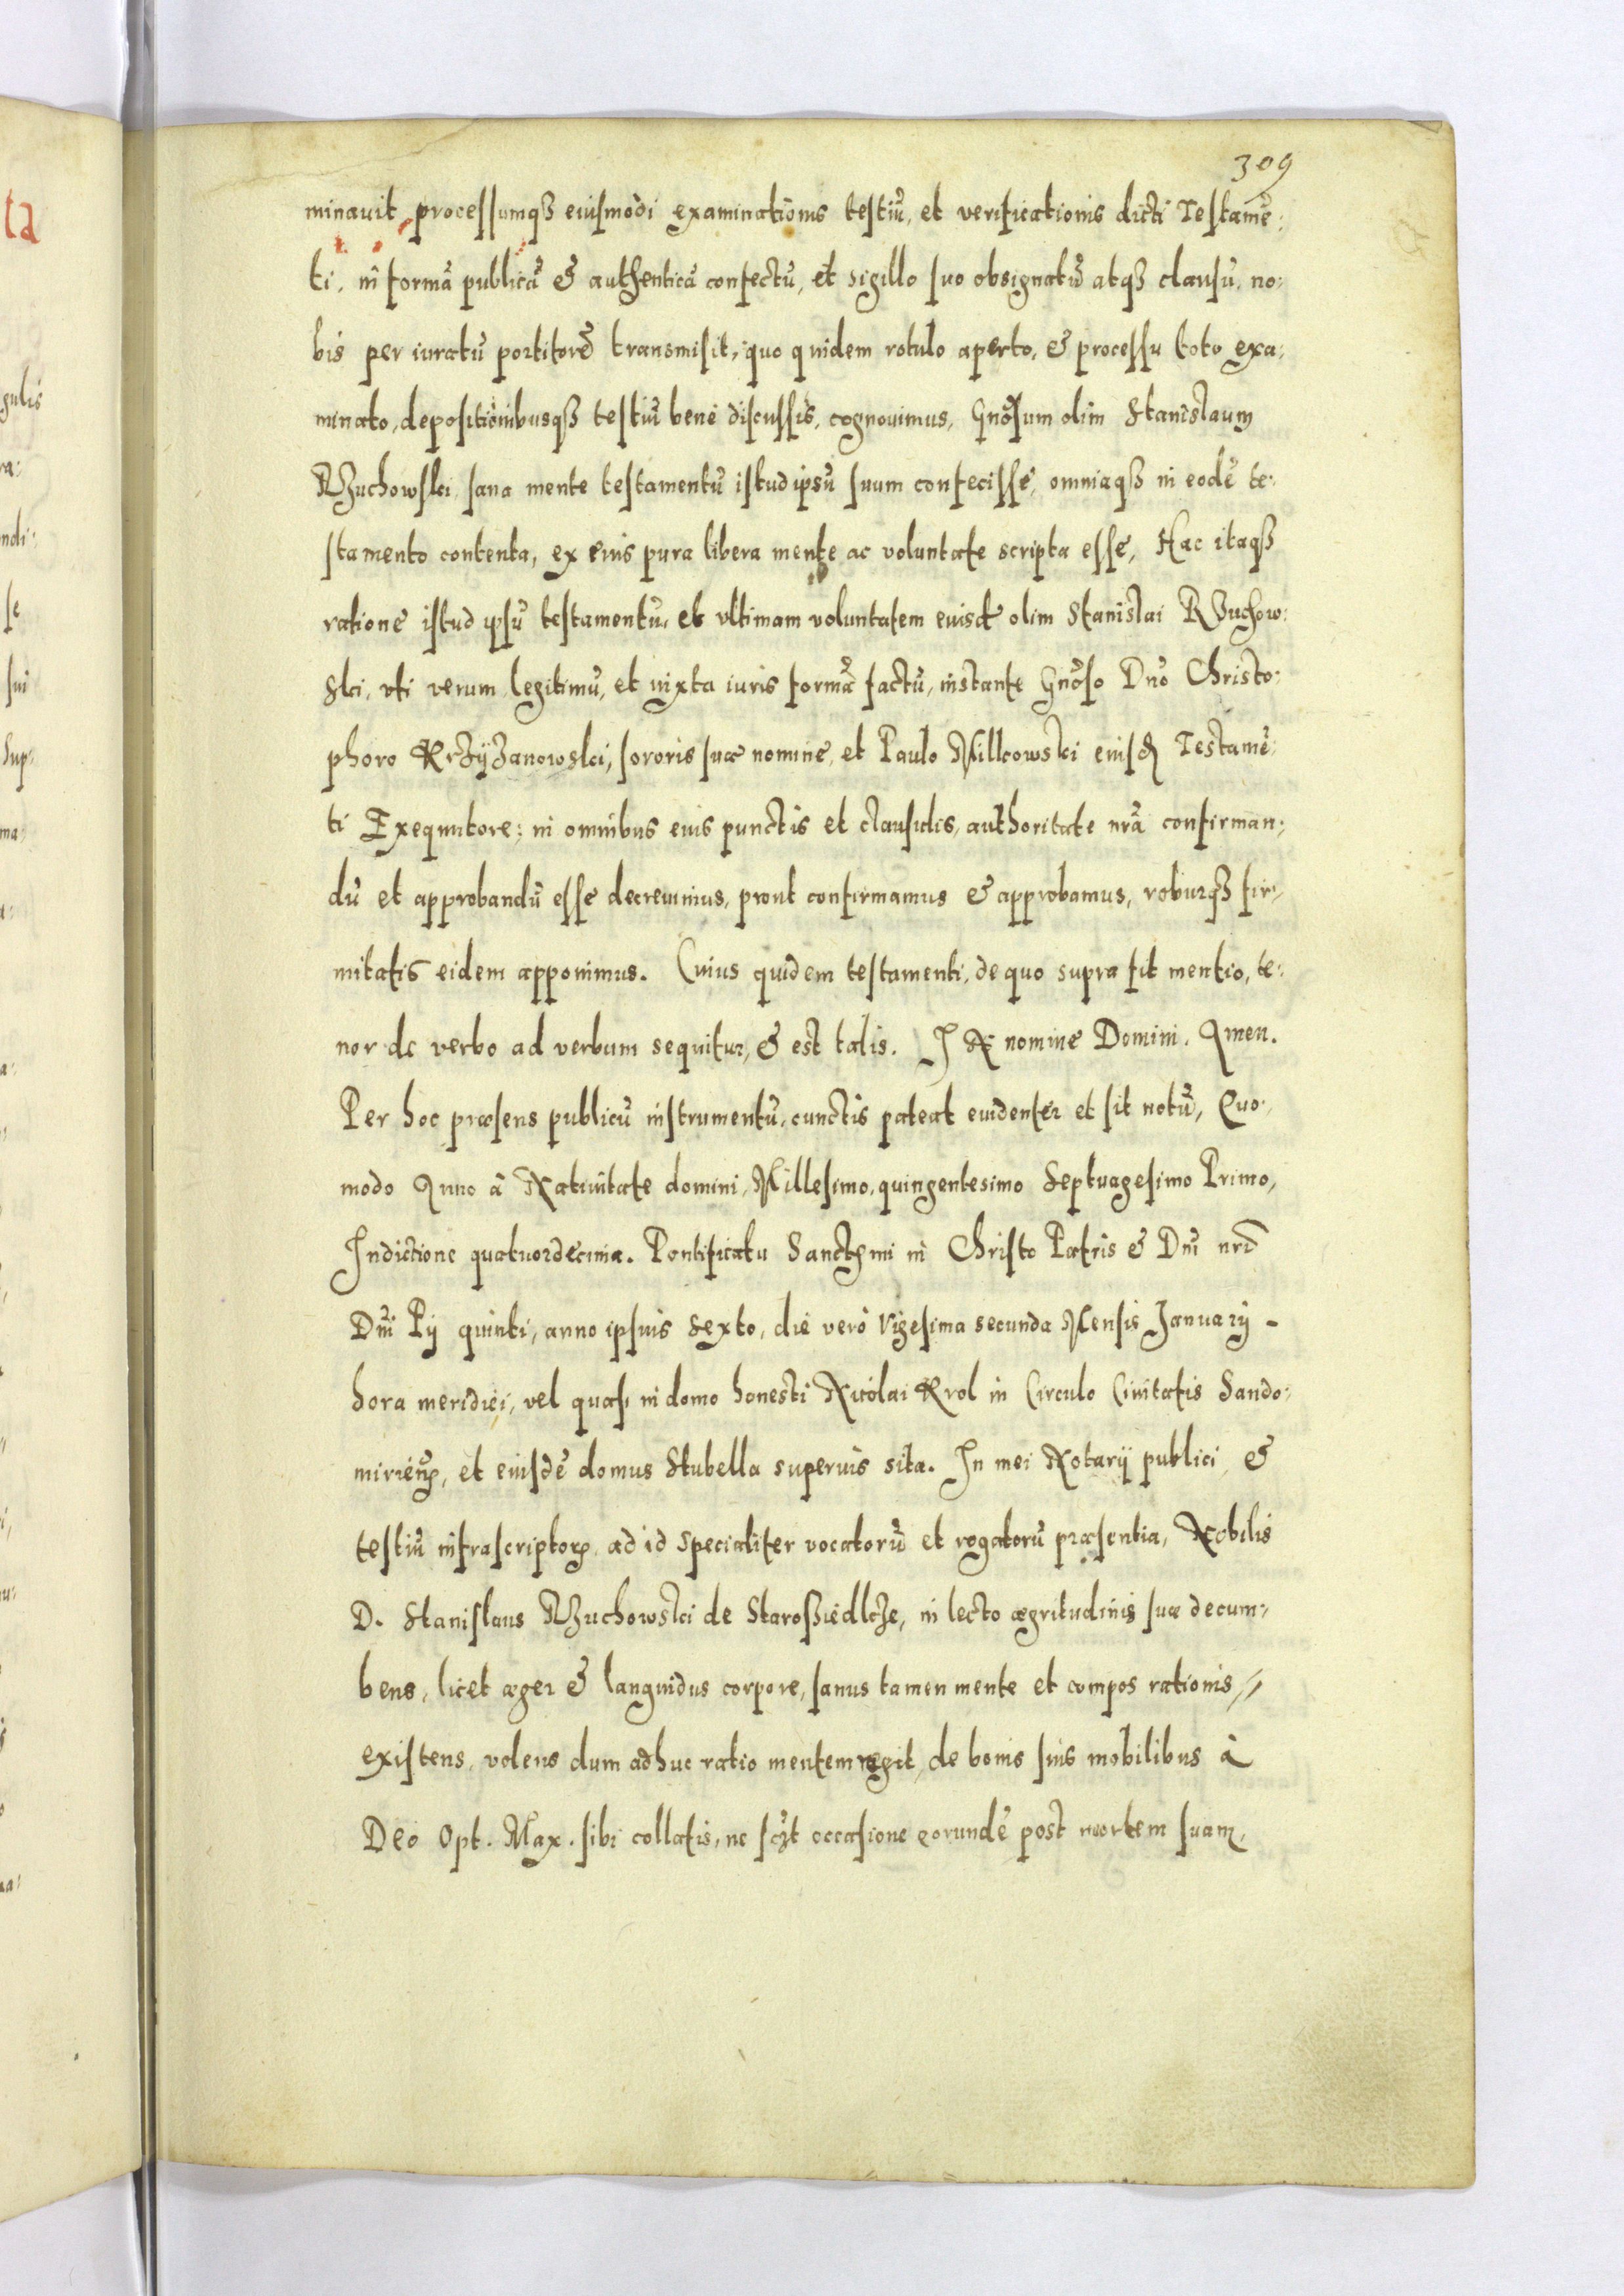 309
minauit, processumqȝ eiusmodi examinationis testiũ, et verificationis dicti Testamẽ:
ti, in formã publicã & authenticã confectũ, et sigillo suo obsignatũ atqȝ clausũ, no:
bis per iuratũ portitorẽ transmisit, quo quidem rotulo aperto, & processu toto exa:
minato, depositionibusqȝ testiũ bene discussis, cognouimus, Gnõsum olim Stanislaum
Rzuchowski sana mente testamentũ istud ipsũ suum confecisse, omniaqȝ in eodẽ te:
stamento contenta, ex eius pura libera mente ac voluntate scripta esse, Hac itaqȝ
ratione istud ipsũ testamentũ, et vltimam voluntatem eiusd olim Stanislai Rzuchow:
ski, vti verum legitimũ, et iuxta iuris formã factũ, instante Gnõso Dño Christo:
phoro Krzÿzanowski, sororis suæ nomine, et Paulo Milkowski eiusd Testamẽ:
ti Exequutore; in omnibus eius punctis et clausulis, authoritate nrã confirman:
dũ et approbandũ esse decreuimus, prout confirmamus & approbamus, roburqȝ fir:
mitatis eidem apponimus. Cuius quidem testamenti, de quo supra fit mentio, te:
nor de verbo ad verbum sequitur, & est talis. IN nomine Domini. Amen.
Per hoc præsens publicũ instrumentũ, cunctis pateat euidenter et sit notũ, Quo:
modo Anno à Natiuitate domini, Millesimo, quingentesimo Septuagesimo Primo,
Indictione quatuordecima. Pontificatu Sanctissmi in Christo Patris & Dñi nrĩ
Dñi Pij quinti, anno ipsius Sexto, die verò Vigesima secunda Mensis Januarij -
hora meridiei, vel quasi in domo honesti Nicolai Krol in Circulo Ciuitatis Sando:
mirieñ, et eiusdẽ domus Stubella superius sita. In mei Notarij publici &
testiũ infrascriptoꝝ, ad id specialiter vocatorũ et rogatorũ præsentia, Nobilis
D. Stanislaus Rzuchowski de Staroßiedlcze, in lecto ægritudinis suæ decum:
bens, licet æger & languidus corpore, sanus tamen mente et compos rationis
existens, volens dum adhuc ratio mentem regit, de bonis suis mobilibus à
Deo Opt. Max. sibi collatis, ne sczt occasione eorundẽ post mortem suam,